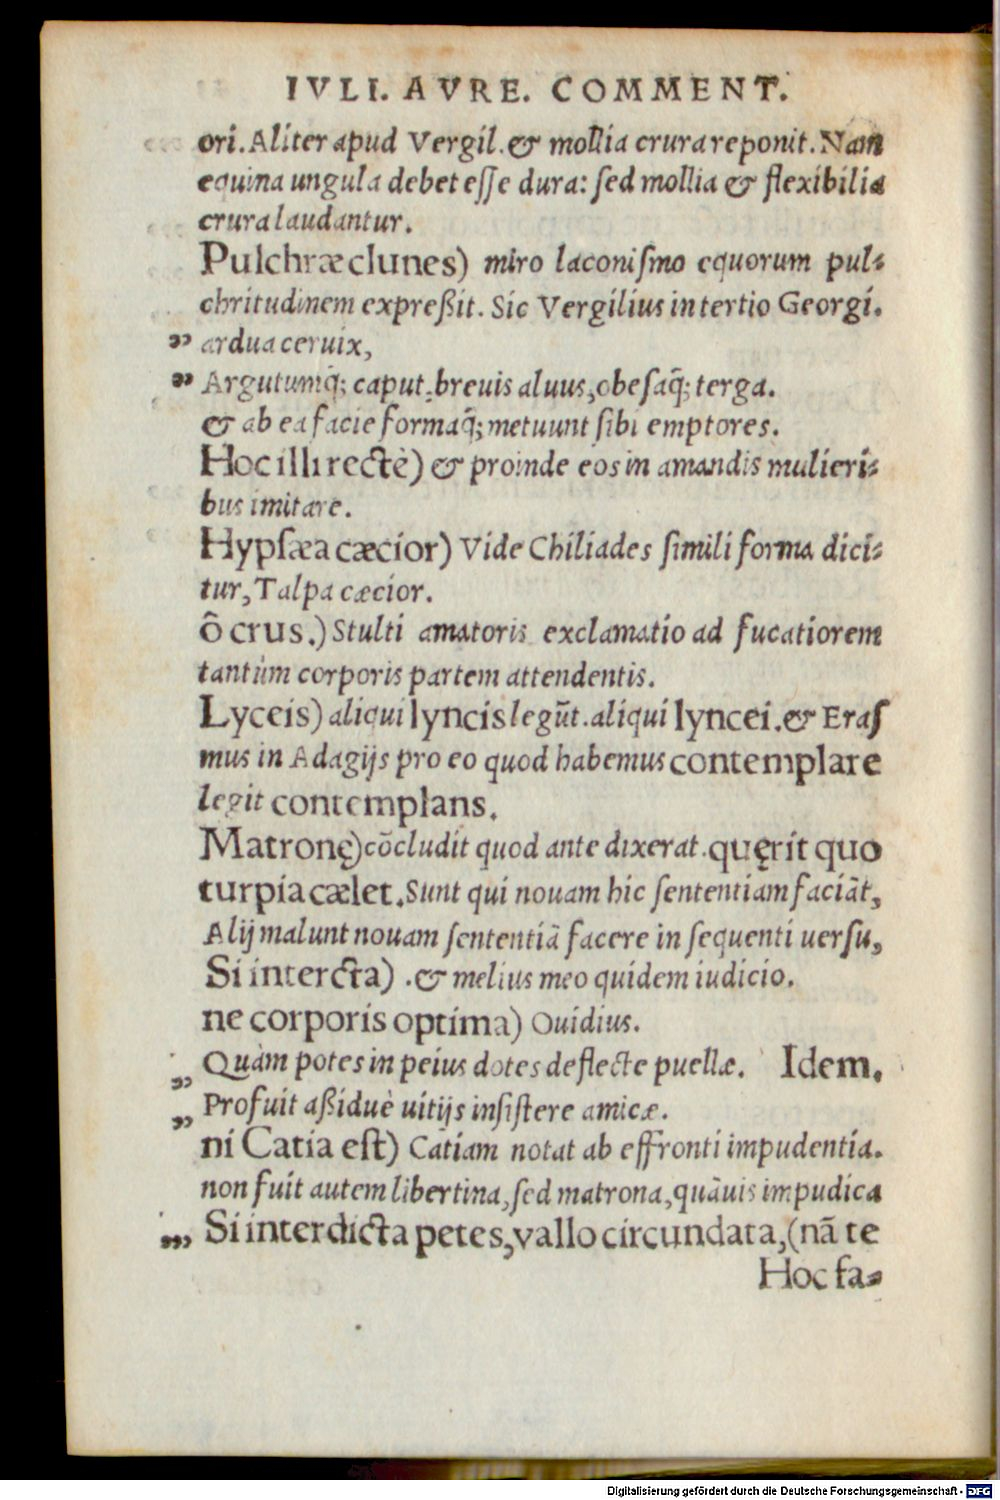 IVLI. AVRE. COMMENT.
ori. Aliter apud Vergil. & mollia crura reponit. Nam
equina ungula debet eſſe dura: ſed mollia & flexibilia
crura laudantur.
Pulchræ clunes) miro laconiſmo equorum pul-
chritudinem expreßit. Sic Vergilius in tertio Georgi.
„ ardua ceruix,
„ Argutumq́; caput, breuis aluus, obeſaq́; terga.
& ab ea facie formaq́; metuunt ſibi emptores.
Hoc illi rectè) & proinde eos in amandis mulieri-
bus imitare.
Hypſæa cæcior) Vide Chiliades ſimili forma dici-
tur, Talpa cæcior.
ô crus.) Stulti amatoris exclamatio ad fucatiorem
tantùm corporis partem attendentis.
Lyceis) aliqui lyncis legũt. aliqui lyncei. & Eraſ
mus in Adagijs pro eo quod habemus contemplare
legit contemplans.
Matronę) cõcludit quod ante dixerat. quęrit quo
turpia cælet. Sunt qui nouam hic ſententiam faciãt,
Alij malunt nouam ſententiã facere in ſequenti uerſu,
Si intercta) . & melius meo quidem iudicio.
ne corporis optima) Ouidius.
„ Quàm potes in peius dotes deflecte puellæ. Idem.
„ Profuit aßiduè uitijs inſiſtere amicæ.
ni Catia eſt) Catiam notat ab effronti impudentia.
non fuit autem libertina, ſed matrona, quãuis impudica
„ Si interdicta petes, vallo circundata, (nã te
Hoc fa-
Digitalisierung gefördert durch die Deutsche Forschungsgemeinschaft - DFG